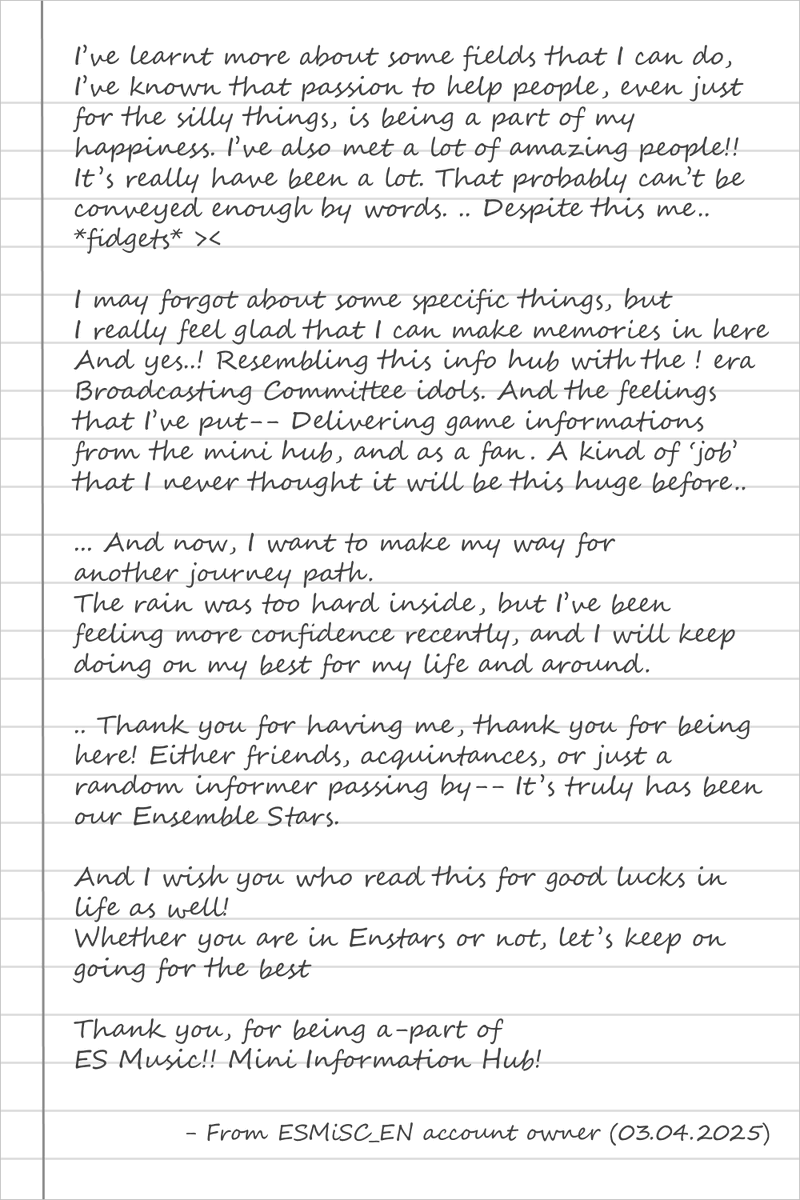 I've learnt more about some fields that I can do,
I've known that passion to help people, even just
for the silly things, is being a part of my
happiness. I've also met a lot of amazing people!!
It's really have been a lot. That probably can't be
conveyed enough by words. .. Despite this me..
*fidgets* ><
I may forgot about some specific things, but
I really feel glad that I can make memories in here
And yes..! Resembling this info hub with the ! era
Broadcasting Committee idols. And the feelings
that I've put-- Delivering game informations
from the mini hub, and as a fan. A kind of 'job'
that I never thought it will be this huge before..
... And now, I want to make my way for
another journey path.
The rain was too hard inside, but I've been
feeling more confidence recently, and I will keep
doing on my best for my life and around.
.. Thank you for having me, thank you for being
here! Either friends, acquintances, or just a
random informer passing by-- It's truly has been
our Ensemble Stars.
And I wish you who read this for good lucks in
life as well!
Whether you are in Enstars or not, let's keep on
going for the best
Thank you, for being a-part of
ES Music!! Mini Information Hub!
- From ESMiSC_EN account owner (03.04.2025)